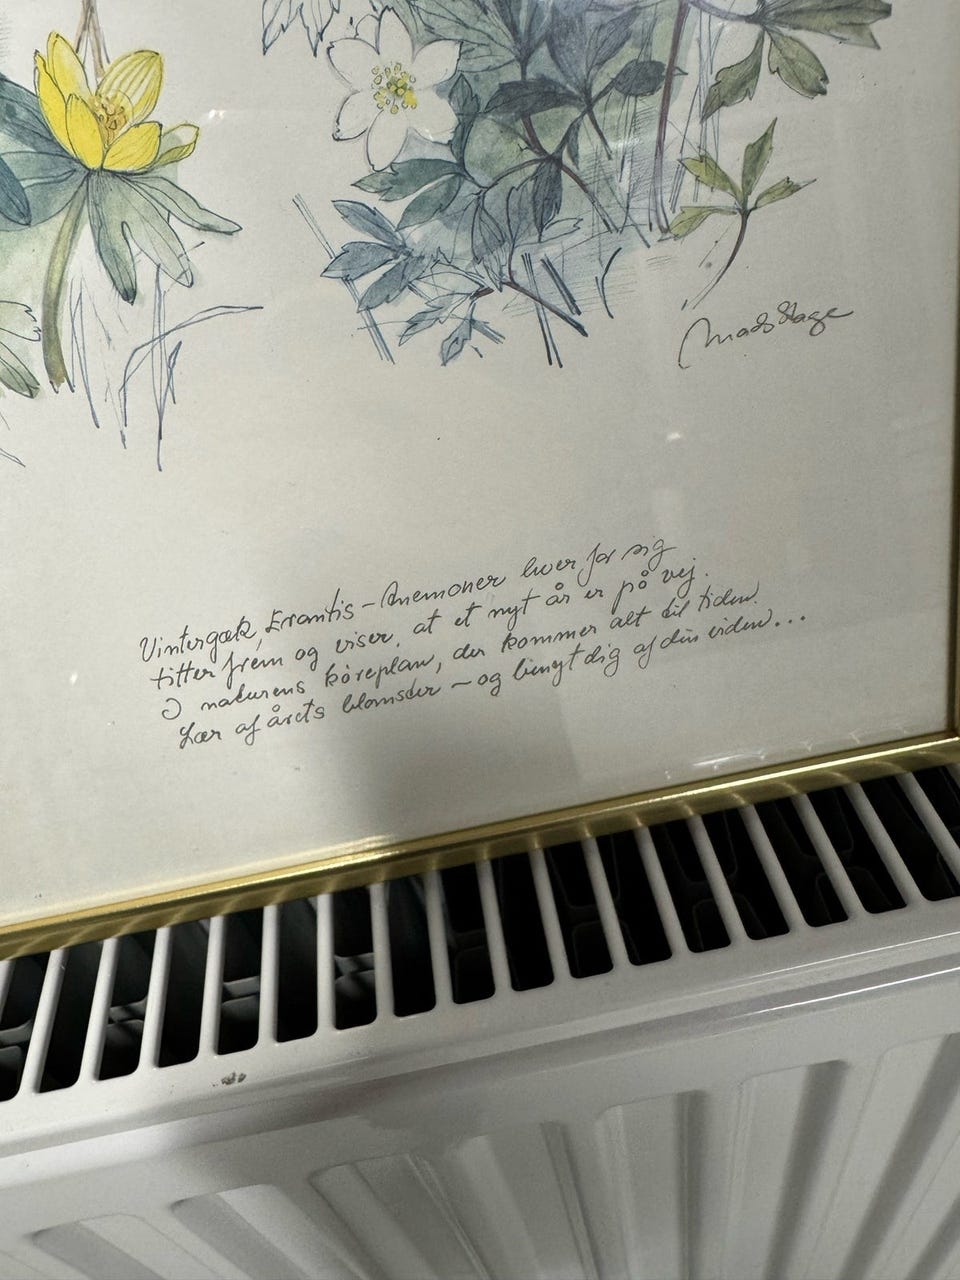 Mads Stage
Vintergæk, Erantis - Anemoner hver for sig
titter frem og viser, at et nyt år er på vej.
I naturens køreplan, der kommer alt til tiden.
Lær af årets blomster - og benyt dig af din viden...